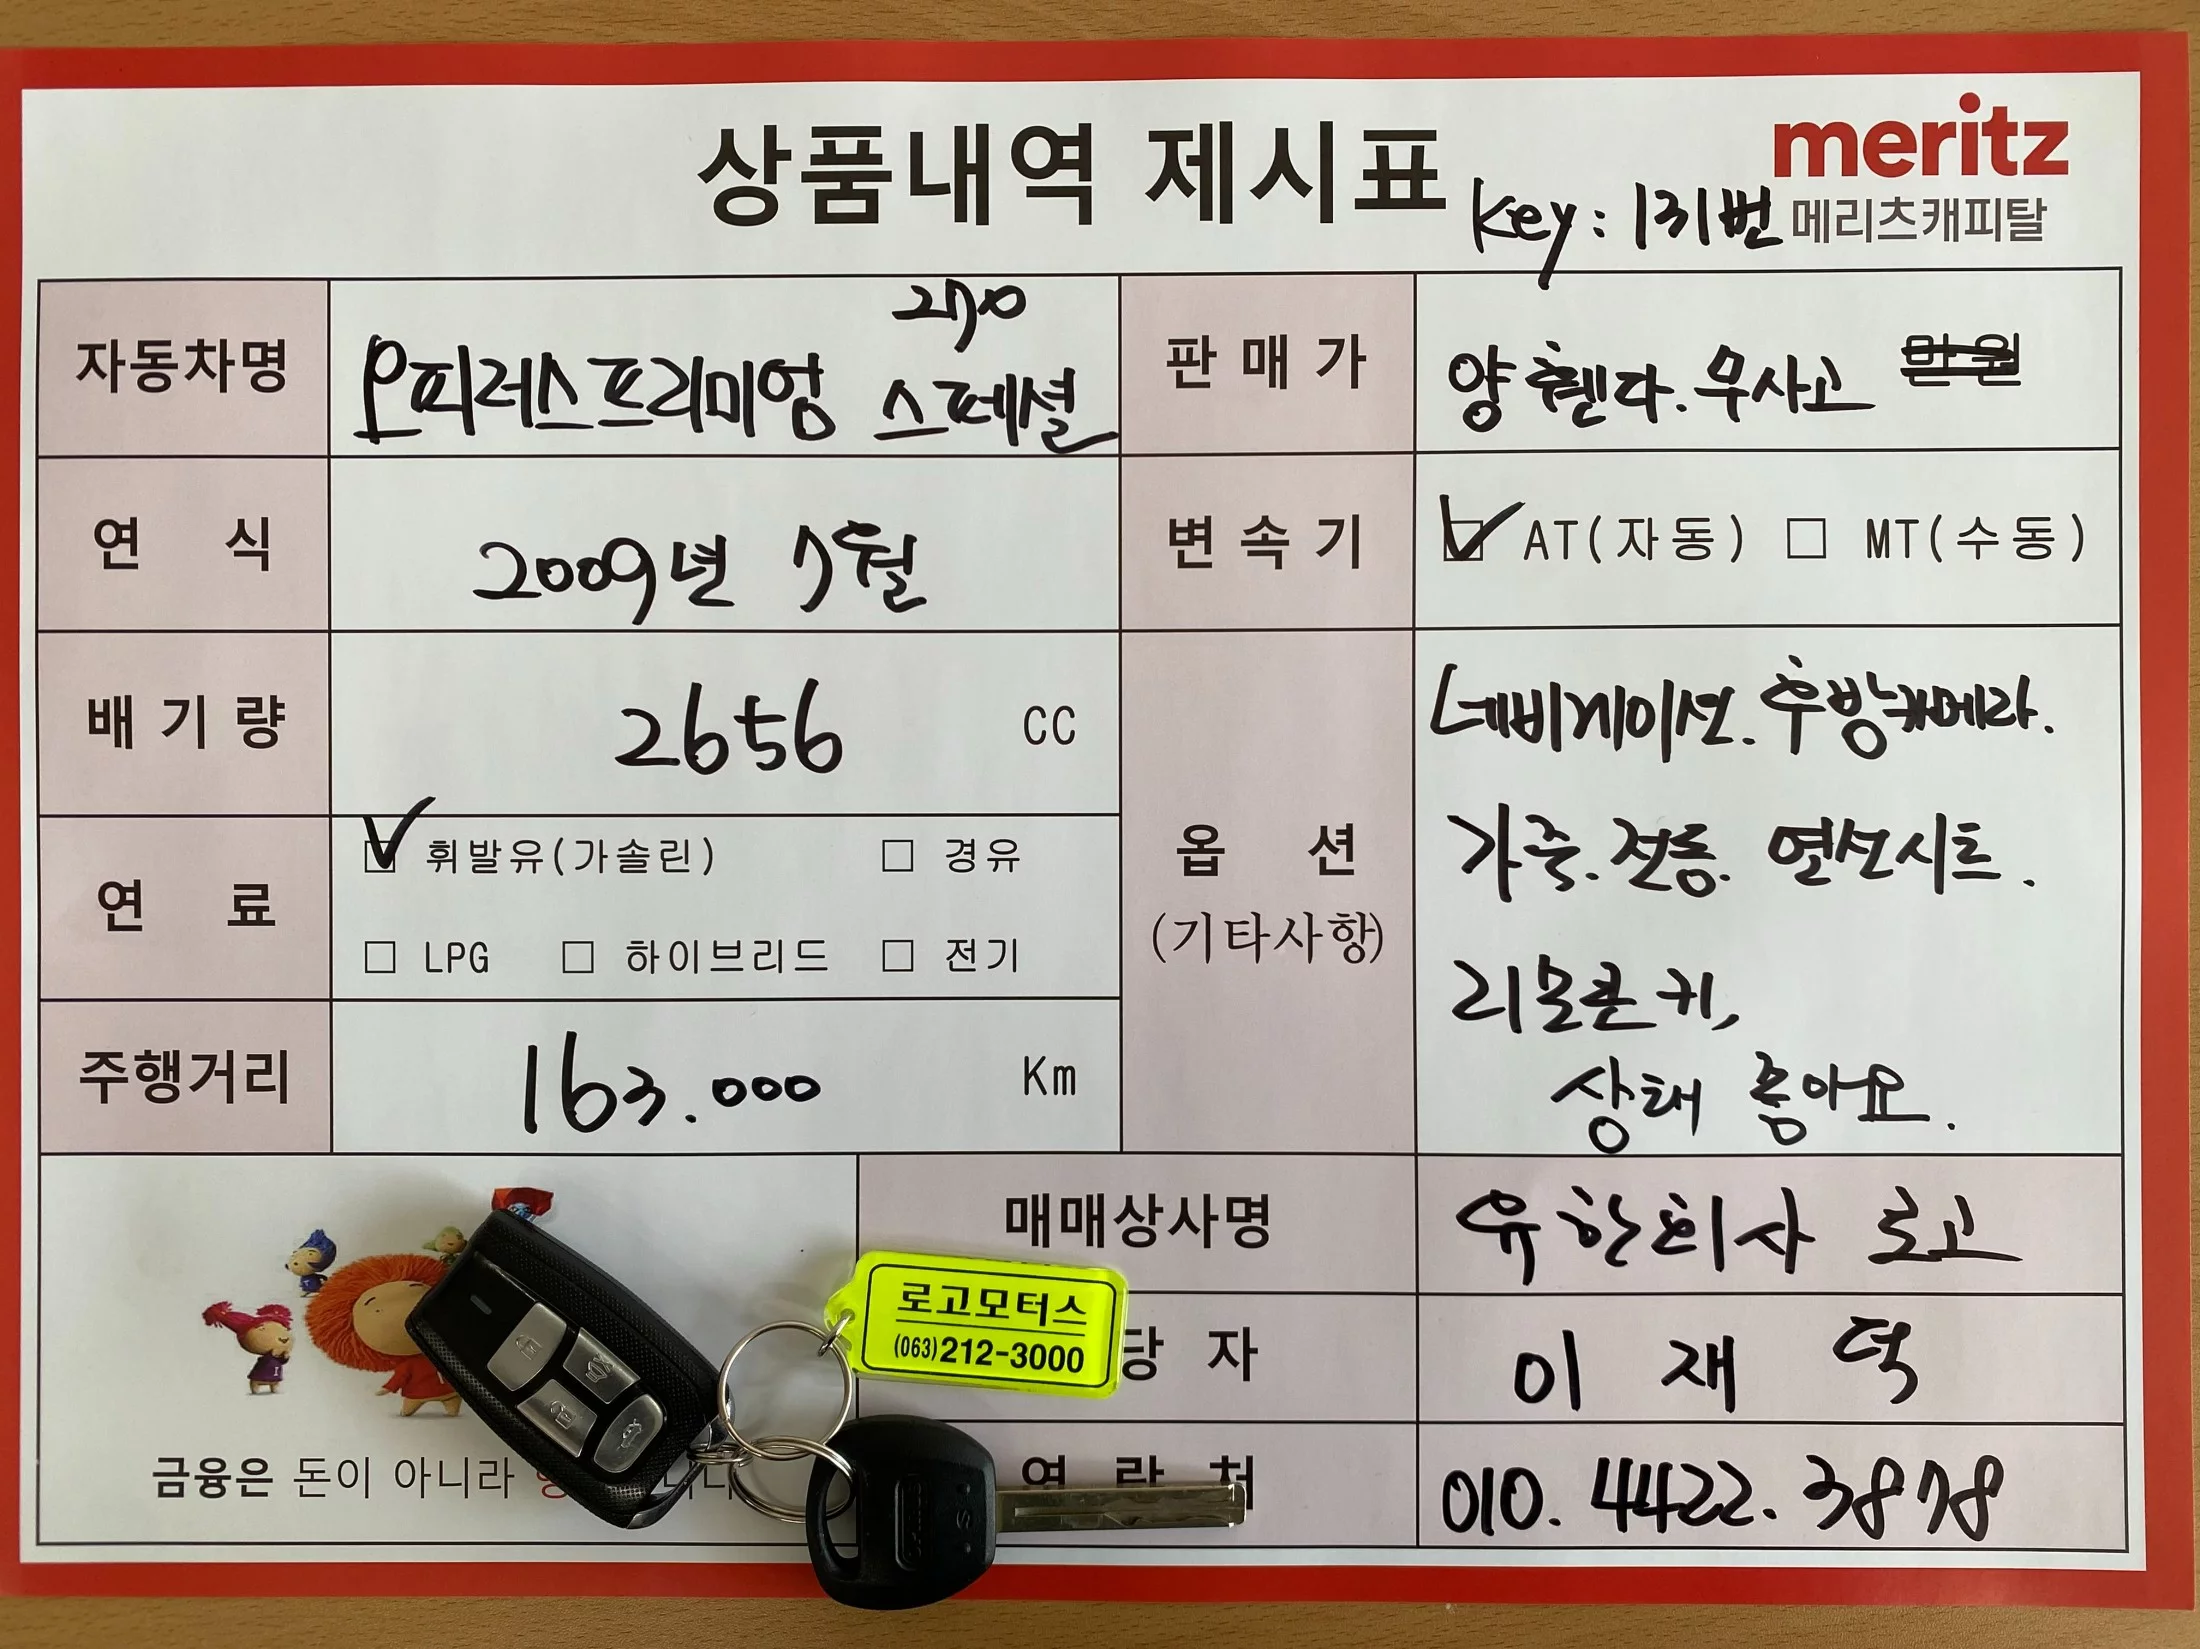 상품내역 제시표
meritz
메리츠캐피탈
Key : 131번
자동차명
270
오피러스프리미엄 스페셜
판매가
양휀다. 무사고 만원
연식
2009년 7월
변속기
AT(자동) MT(수동)
배기량
2656 CC
연료
휘발유(가솔린) 경유
LPG 하이브리드 전기
주행거리
163.000 Km
옵션
(기타사항)
네비게이션. 후방카메라.
가죽. 전동. 열선시트.
리모콘키,
상태 좋아요.
매매상사명
유한회사 로고
당자
이재덕
연락처
010. 4422. 3878
로고모터스
(063)212-3000
금융은 돈이 아니라